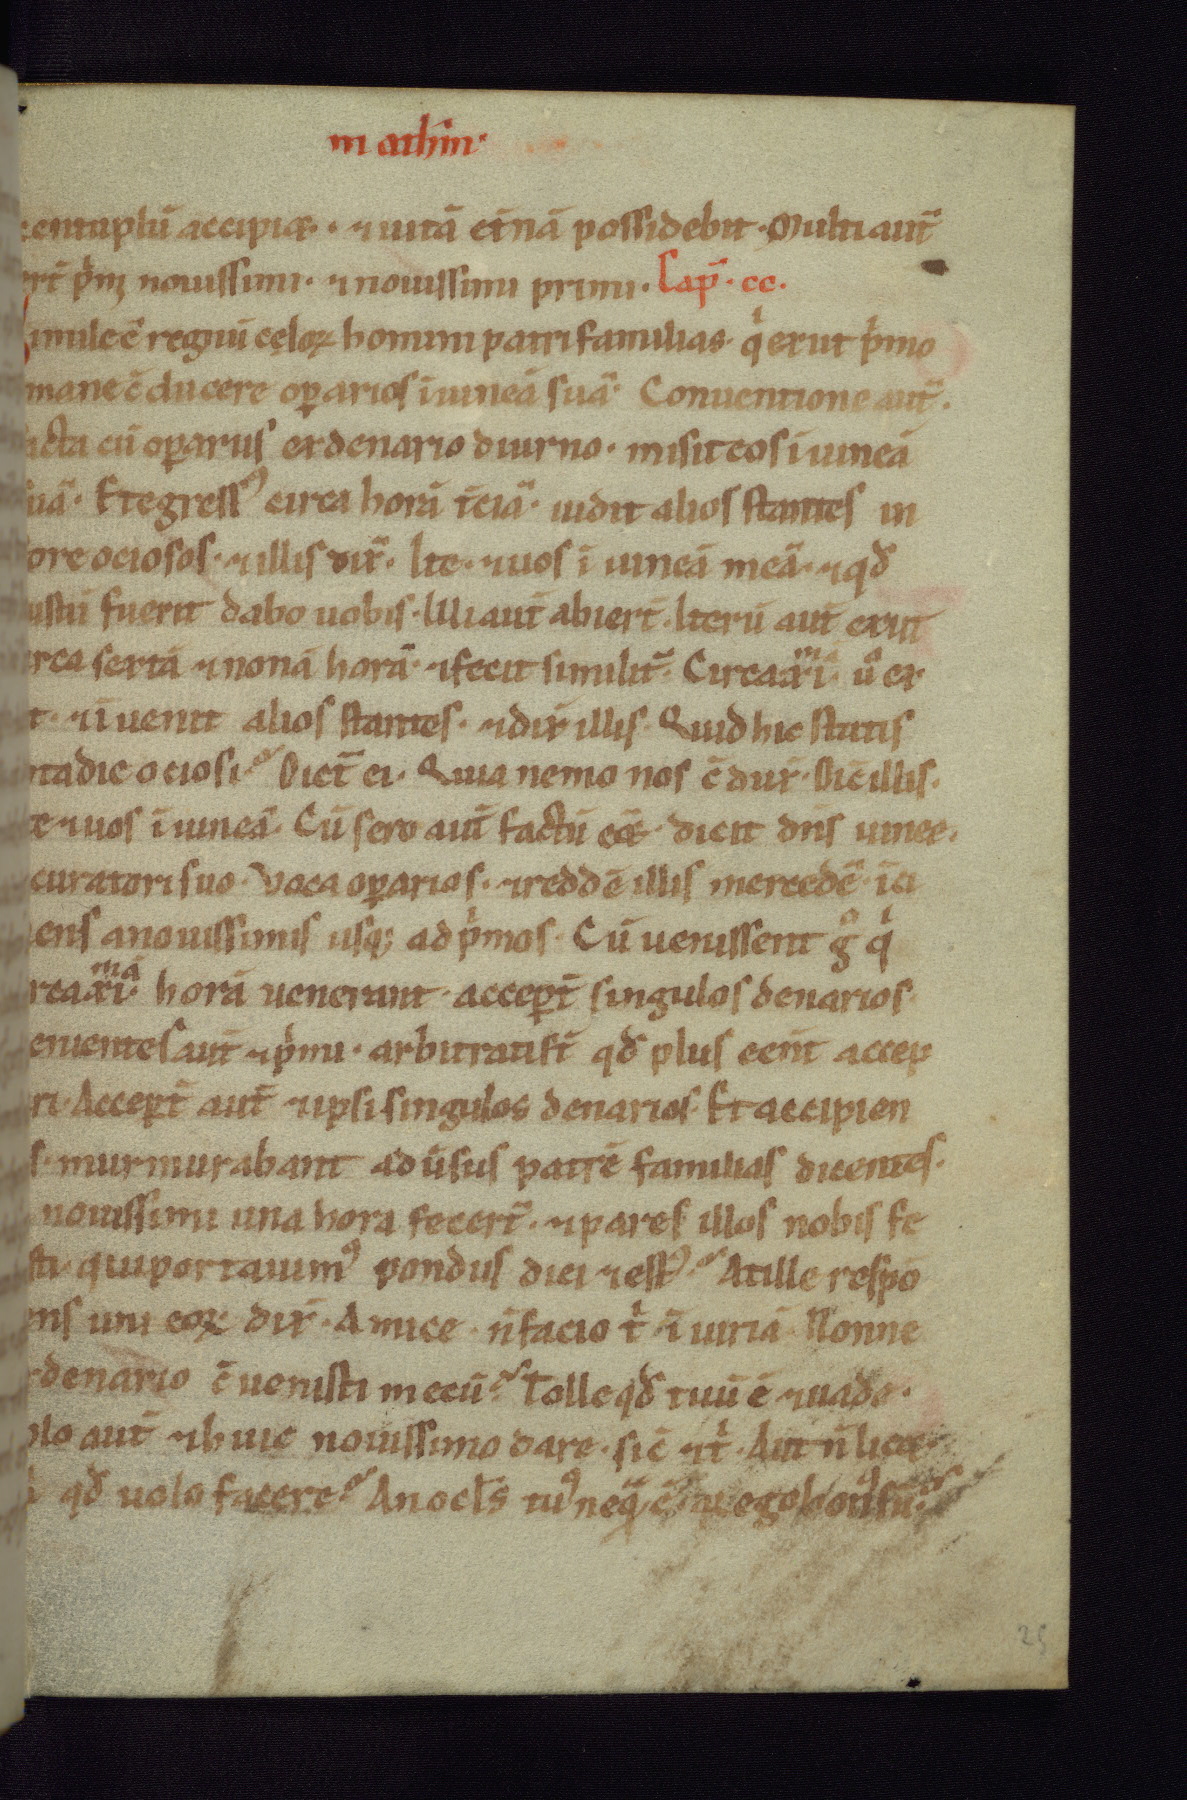 m athm·
centuplū accipiet·· ⁊ uitā et̄nā possidebit· Multi aut̄
ert̄ pͥmi nouissimi· ⁊ nouissimi primi· Cap̄· cc·
Simile ē regnū cęloꝝ homini patri familias· qͥ exiit pͥmo
mane c̄ducere oꝑarios ī uineā suā· Conuentione aut̄·
facta cū oꝑariis ex denario diurno· misit eos ī uineā
suā· Et egressꝰ circa horā t̄ciā· uidit alios stantes in
fore ociosos· ⁊ illis dix̄· Ite· ⁊ uos ī uineā meā· ⁊ qđ
iustū fuerit dabo uobis· Illi aut̄ abiert̄· Iterū aut̄ exiit
circa sextā ⁊ nonā horā· ⁊ fecit similit̄· Circa xiͫ uͦ ex
iit· ⁊ īuenit alios stantes· ⁊ dix̄ illis· Quid hic statis
tota die ociosi? Dict̄ ei· Quia nemo nos c̄dux̄· Dic̄ illis·
Ite ⁊ uos ī uineā· Cū sero aut̄ factū eēt· dicit dn̄s uinee·
curatori suo· Voca oꝑarios· ⁊ redde illis mercedē· īci
piens a nouissimis usqꝫ ad pͥmos· Cū uenissent gͦ qͥ
circa xiͫͣ horā uenerant· acceꝑt̄ singulos denarios·
uenientes aut̄ ⁊ pͥmi· arbitrati st̄ qđ plus eēnt accep
turi· Acceꝑt̄ aut̄ ⁊ ipsi singulos denarios· Et accipien
tes· murmurabant aduersus patrē familias dicentes·
nouissimi una hora fecert̄· ⁊ pares illos nobis fe
cisti· qui portauimꝰ pondus diei ⁊ estꝰ? At ille respō
dens uni eoꝝ dix̄· Amice· n̄ facio tͥ· īiuriā· Nonne
ex denario c̄uenisti mecū? Tolle qđ tuū ē ⁊ uade·
uolo aut̄ ⁊ huic nouissimo dare· sic̄ ⁊ tͥ· Aut n̄ licet
qđ uolo facere? An ocl̄s tuꝰ neqͣ ē· ego bonꝰ sū?
25